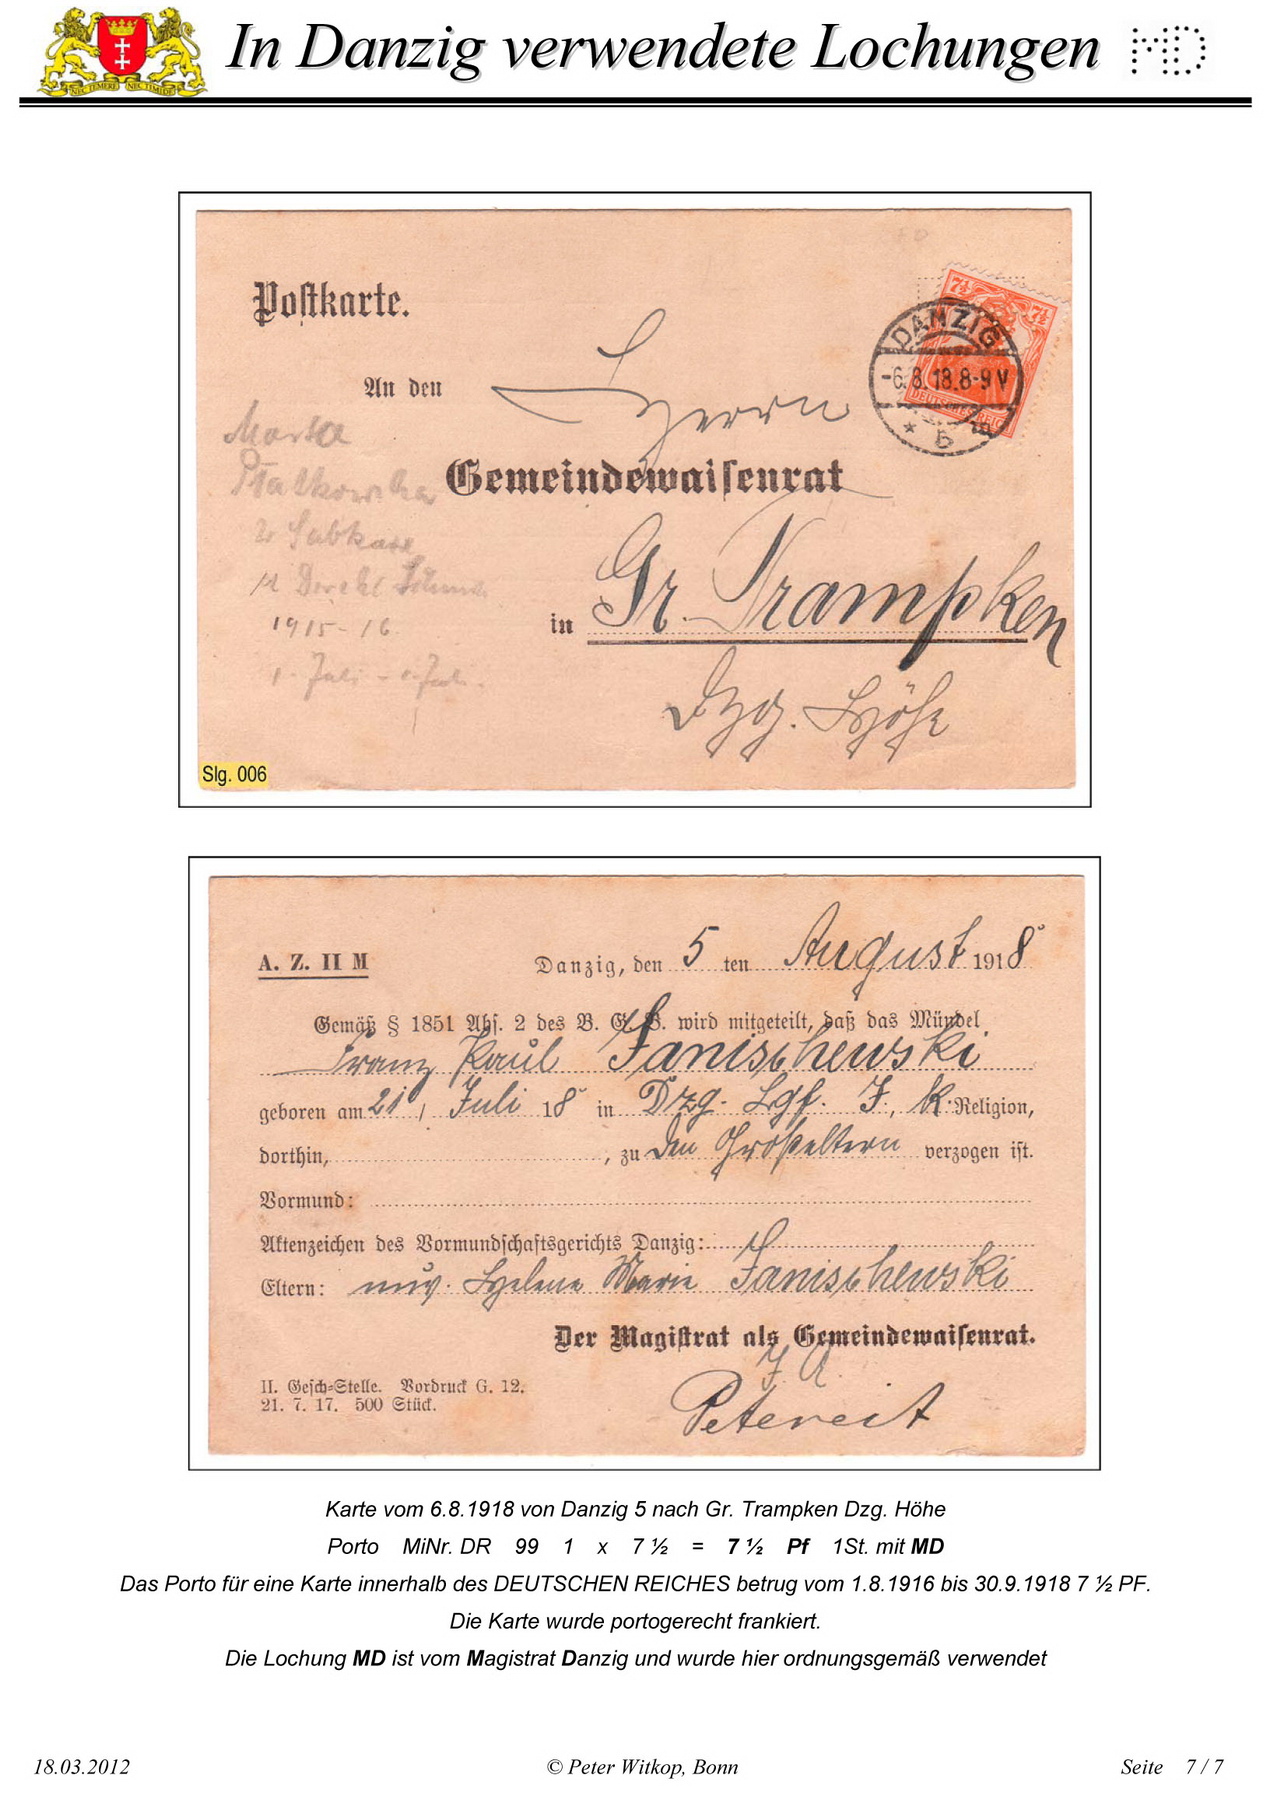 In Danzig verwendete Lochungen MD
NEC TEMERE NEC TIMIDE
Postkarte.
7½ 7½
DEUTSCHES REICH
DANZIG
-6.8.18.8-9 V
* 5 *
An den Herrn
Gemeindewaisenrat
in Gr. Trampken
Dzg. Höhe
1915-16
1. Juli - 1. Juli.
Slg. 006
A. Z. II M
Danzig, den 5 ten August 1918
Gemäß § 1851 Abs. 2 des B. G. B. wird mitgeteilt, daß das Mündel
Franz Paul Janischewski
geboren am 21. Juli 18 in Dzg. Lgf. J, K. Religion,
dorthin, , zu den Großeltern verzogen ist.
Vormund:
Aktenzeichen des Vormundschaftsgerichts Danzig:
Eltern: unv. Helene Marie Janischewski
Der Magistrat als Gemeindewaisenrat.
J A
Petereit
II. Gesch-Stelle. Vordruck G. 12.
21. 7. 17. 500 Stück.
Karte vom 6.8.1918 von Danzig 5 nach Gr. Trampken Dzg. Höhe
Porto MiNr. DR 99 1 x 7 ½ = 7 ½ Pf 1St. mit MD
Das Porto für eine Karte innerhalb des DEUTSCHEN REICHES betrug vom 1.8.1916 bis 30.9.1918 7 ½ PF.
Die Karte wurde portogerecht frankiert.
Die Lochung MD ist vom Magistrat Danzig und wurde hier ordnungsgemäß verwendet
18.03.2012 © Peter Witkop, Bonn Seite 7 / 7